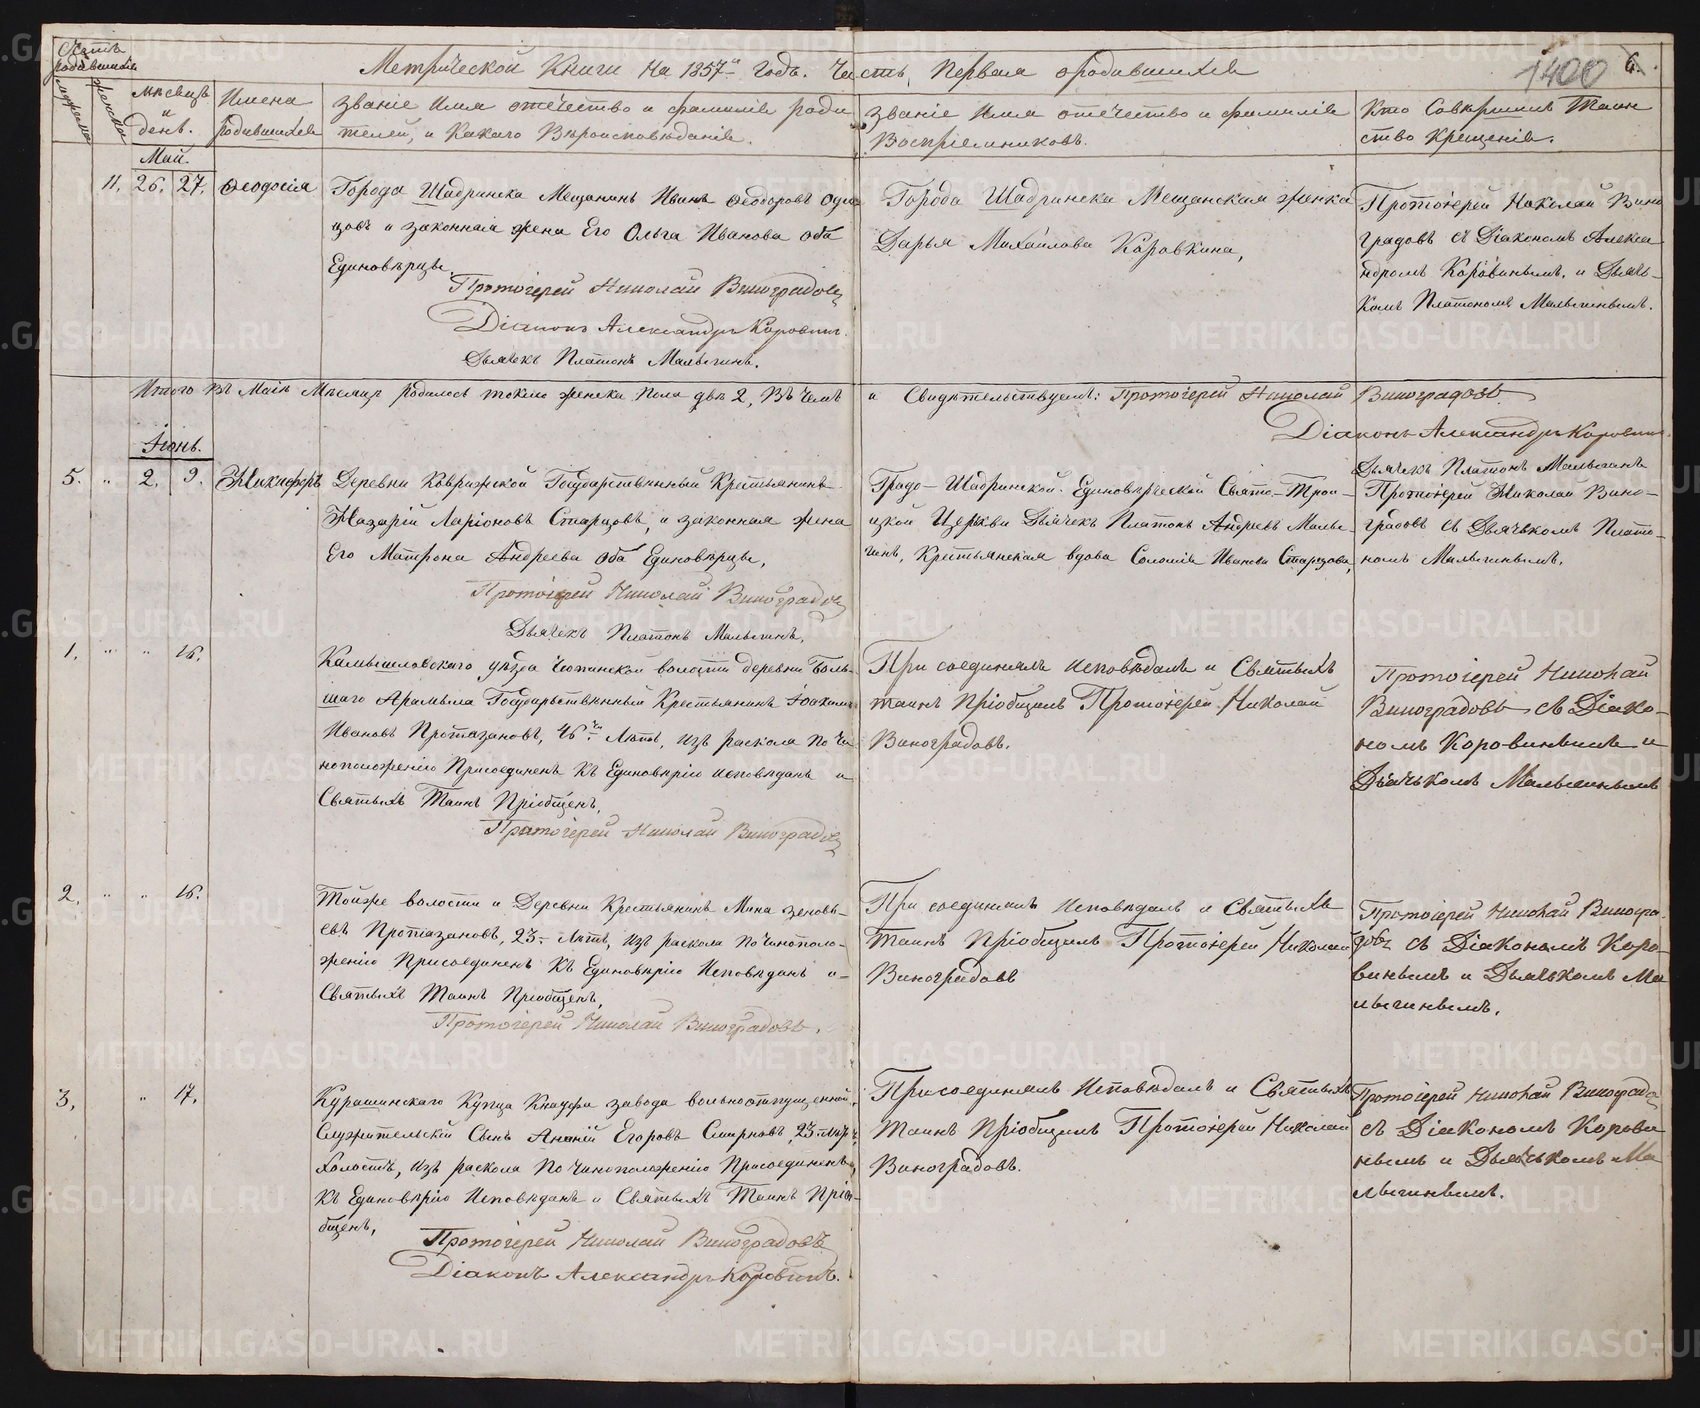 Счетъ родившихся
Метрической Книги на 1857й годъ. Часть, первая о родившихся
1400 6.
мужеска
женска
Мѣсяцъ и день.
Имена родившихся
Званіе имя отечество и фамилія роди
телей, и какого Вѣроисповѣданія.
Званіе имя отечество и фамилія
Воспріемниковъ.
Кто Совершилъ Таин
ство Крещенія.
Май.
11. 26. 27. Ѳеодосія
Города Шадринска Мещанинъ Иванъ Ѳеодоровъ Один
цовъ и законная жена Его Ольга Иванова оба
Единовѣрцы.
Протоіерей Николай Виноградовъ
Діаконъ Александръ Коровинъ.
Дьячекъ Платонъ Малыгинъ.
Города Шадринска Мещанская женка
Дарья Михайлова Коровкина,
Протоіерей Николай Вино
градовъ съ Діакономъ Алекса
ндромъ Коровинымъ, и Дьячь-
комъ Платономъ Малыгинымъ.
Итого въ Маіѣ Мѣсяцѣ родилось токмо женска пола двѣ 2, Въ чемъ
и Свидѣтельствуемъ: Протоіерей Николай Виноградовъ
Діаконъ Александръ Коровинъ.
Дьячекъ Платонъ Малыгинъ
Іюнь.
5. " 2. 9. Никифоръ
Деревни Государственный Крестьянинъ
Назарій Ларіоновъ Старцовъ, и законная жена
Его Матрона Андреева оба Единовѣрцы,
Протоіерей Николай Виноградовъ
Дьячекъ Платонъ Малыгинъ,
Градо-Шадринской Единовѣрческой Свято-Трои-
цкой Церкви Дьячекъ Платонъ Андреевъ Малы
гинъ, Крестьянская вдова Соломія Иванова Старцова,
Протоіерей Николай Вино-
градовъ съ Дьячькомъ Плато-
номъ Малыгинымъ.
1. " " 16.
Камышловскаго уѣзда волости деревни Боль-
шаго Арамыла Государственный Крестьянинъ Іоакимъ
Ивановъ Протазановъ, 46ти Лѣтъ, изъ раскола по Чи
ноположенію Присоединенъ къ Единовѣрію исповѣданъ и
Святыхъ Таинъ Пріобщенъ.
Протоіерей Николай Виноградовъ
При соединялъ исповѣдалъ и Святыхъ
таинъ пріобщилъ Протоіерей Николай
Виноградовъ.
Протоіерей Николай
Виноградовъ съ Діако-
номъ Коровинымъ и
Дьячькомъ Малыгинымъ
2. " " 16.
Тойже волости и Деревни Крестьянинъ Мина Зеновь-
евъ Протазановъ, 23. Лѣтъ, изъ раскола по чинополо-
женію Присоединенъ къ Единовѣрію Исповѣданъ и
Святыхъ Таинъ Пріобщенъ,
Протоіерей Николай Виноградовъ.
При соединялъ Исповѣдалъ и Святыхъ
Таинъ Пріобщилъ Протоіерей Николай
Виноградовъ
Протоіерей Николай Виногра-
довъ съ Діакономъ Коро-
винымъ и Дьячькомъ Ма
лыгинымъ.
3. " 17.
Курашинскаго Купца Кнауфа завода вольноотпущенной
Служительскій Сынъ Ананій Егоровъ Смирновъ, 23 лѣтъ
Холостъ, изъ раскола по чиноположенію Присоединенъ
къ Единовѣрію Исповѣданъ и Святыхъ Таинъ Пріо-
бщенъ,
Протоіерей Николай Виноградовъ
Діаконъ Александръ Коровинъ.
Присоединялъ Исповѣдалъ и Святыхъ
Таинъ Пріобщилъ Протоіерей Николай
Виноградовъ.
Протоіерей Николай Виноградовъ
съ Діакономъ Корови
нымъ и Дьячькомъ Ма
лыгинымъ.
METRIKI.GASO-URAL.RU